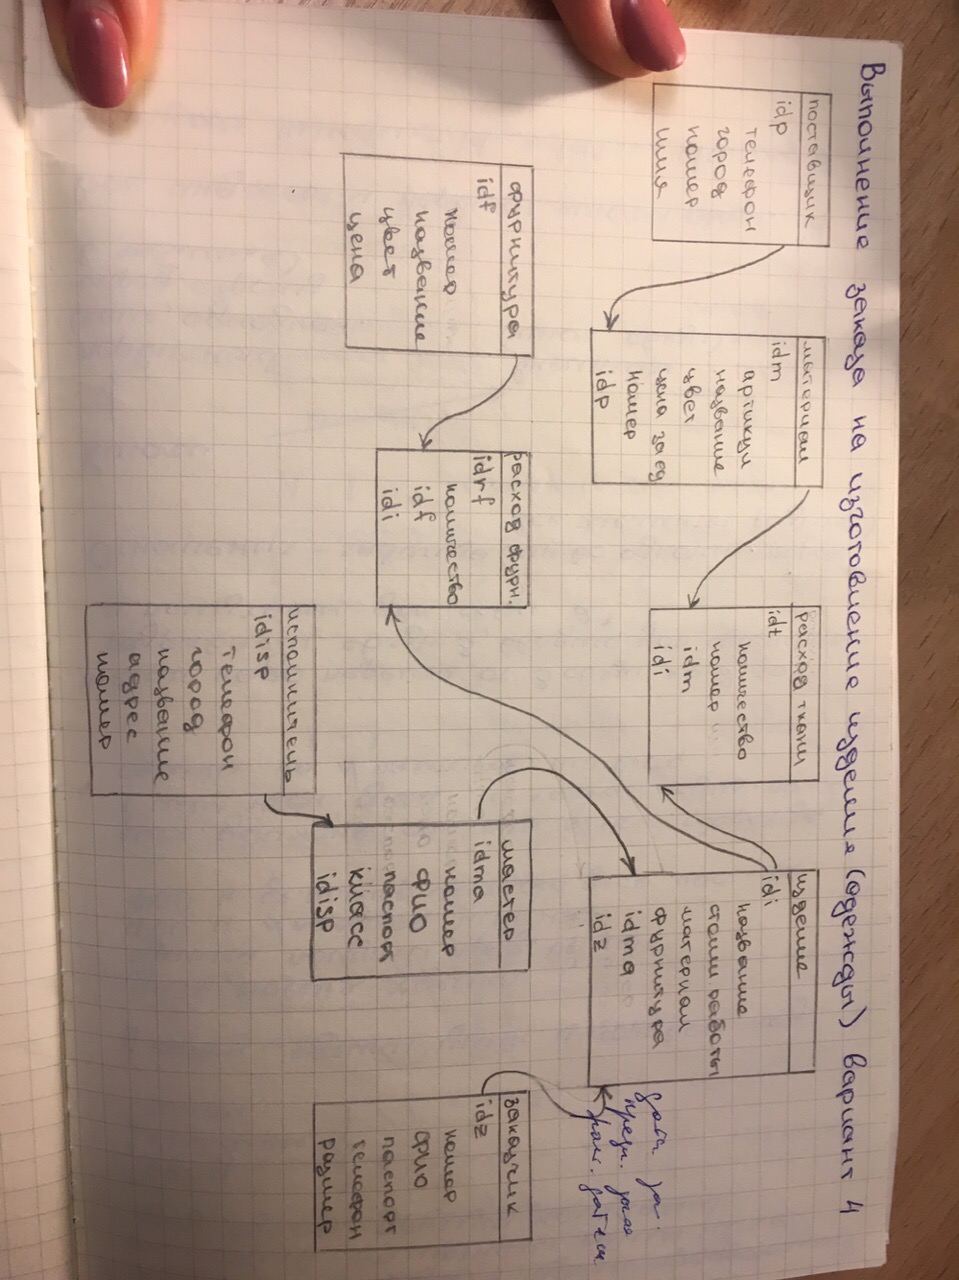 Выполнение заказа на изготовление изделия (одежды) вариант 4
поставщик
idp
телефон
город
номер
имя
материал
idm
артикул
название
цвет
цена за ед
номер
idp
расход ткани
idt
количество
номер
idm
idi
изделие
idi
название
стоим работы
материал
фурнитура
idma
idz
дата за.
фурнитура
idf
номер
название
цвет
цена
расход фурн.
idrf
количество
idf
idi
мастер
idma
номер
ФИО
паспорт
класс
idisp
заказчик
idz
номер
ФИО
паспорт
телефон
размер
исполнитель
idisp
телефон
город
название
адрес
номер